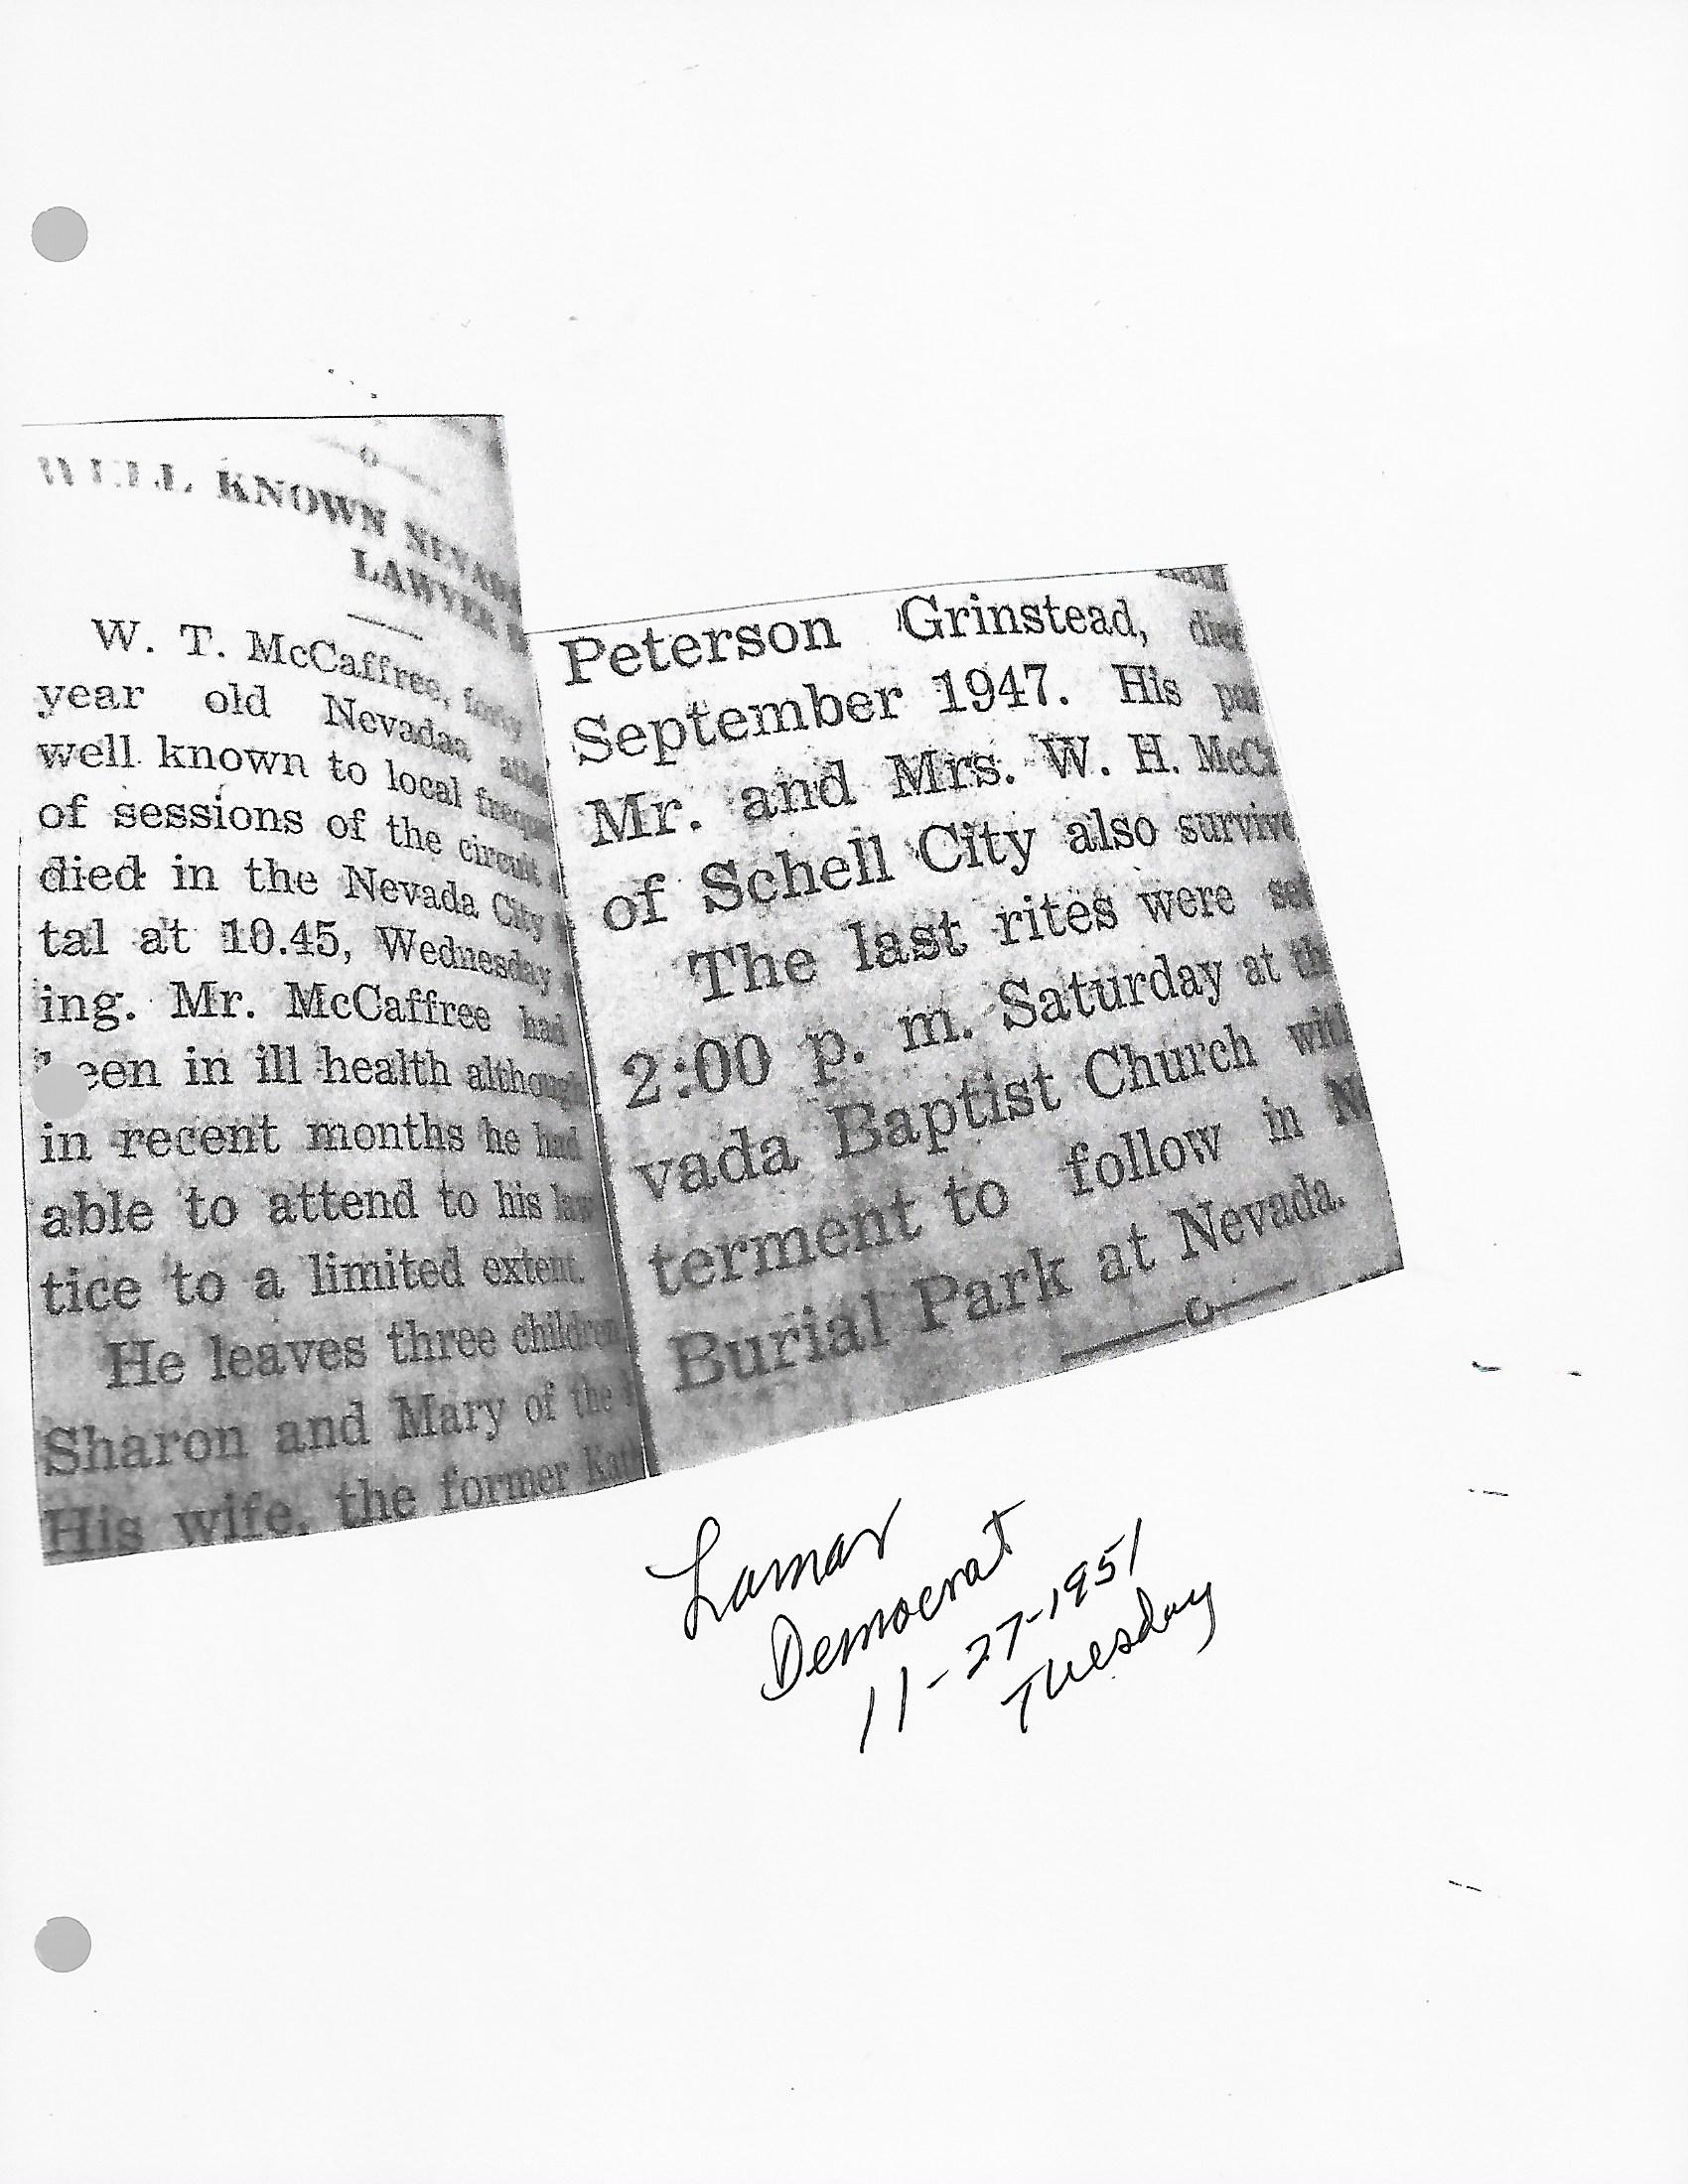 —o—
WELL KNOWN
LAWYER
W. T. McCaffree, forty
year old Nevadan
well known to local
of sessions of the circuit
died in the Nevada City
tal at 10.45, Wednesday
ing. Mr. McCaffree had
een in ill health although
in recent months he had
able to attend to his law
tice to a limited extent.
He leaves three children
Sharon and Mary of the
His wife, the former
Peterson Grinstead, died
September 1947. His
Mr. and Mrs. W. H.
of Schell City also survive
The last rites were set
2:00 p. m. Saturday at the
vada Baptist Church with
terment to follow in
Burial Park at Nevada.
—o—
Lamar
Democrat
11-27-1951
Tuesday